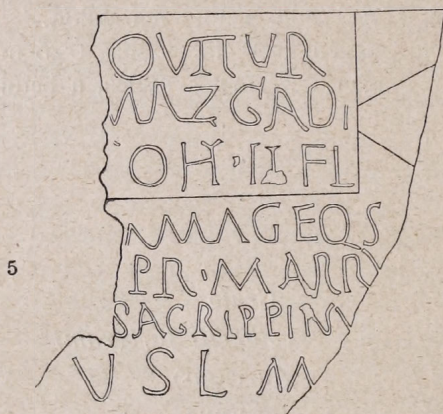 OVITVR
MZGADI
OH·II FL
MAGEQS
5
PR·MARR
SAGRIPPIN
VSLM